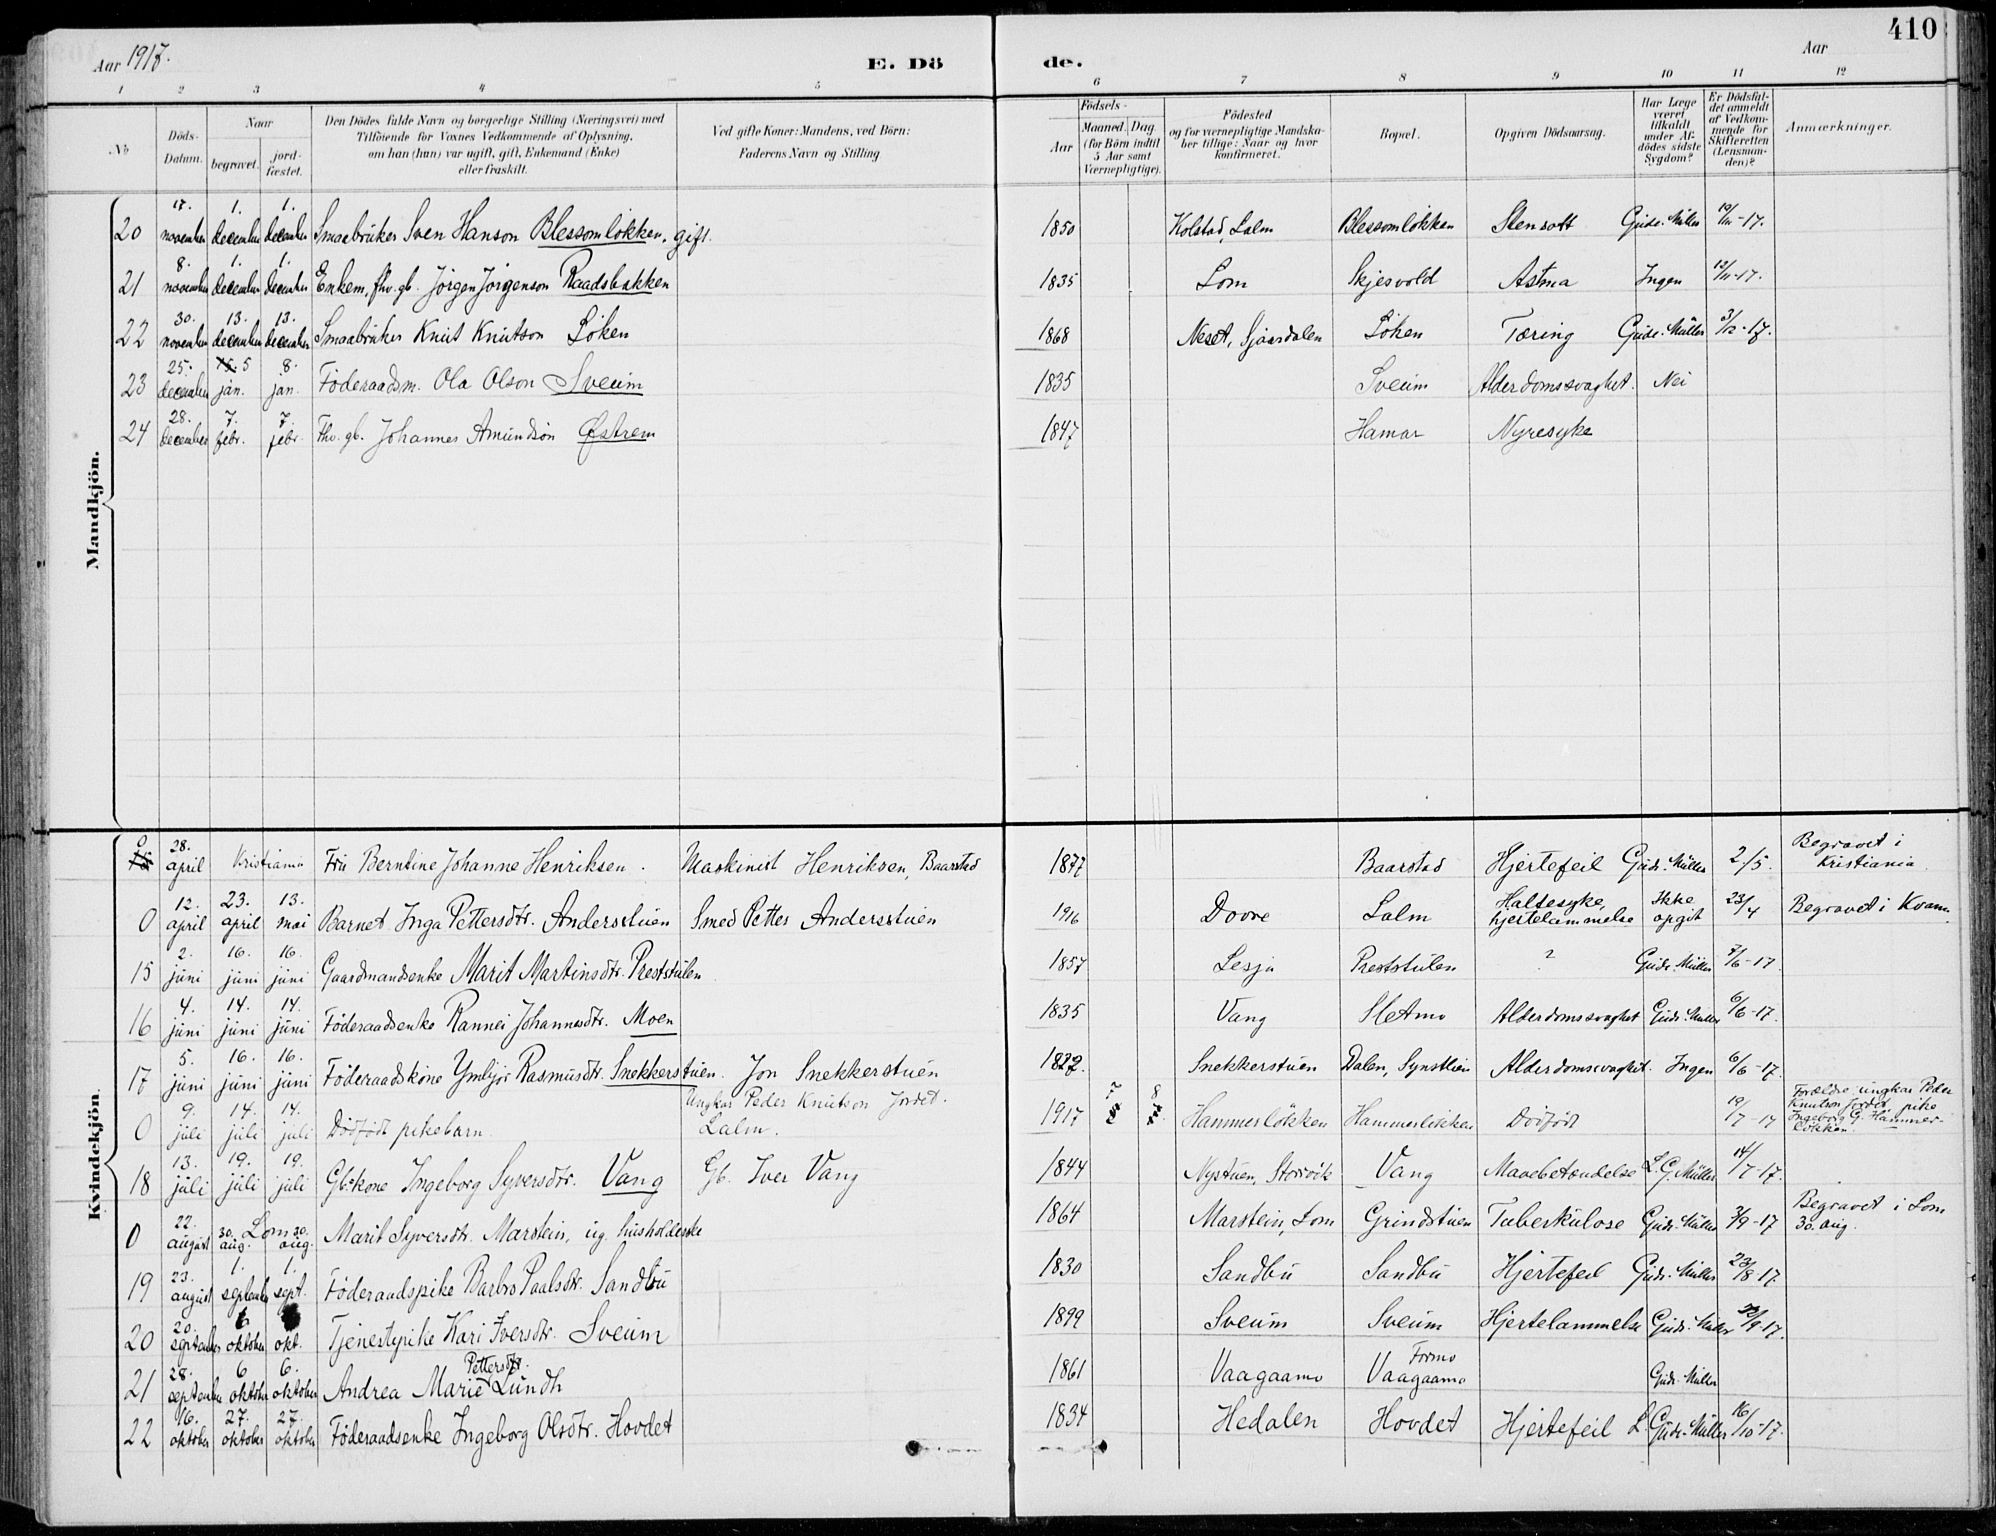 410
Aar 1917. E. Dö de. Aar
1 2 3 4 5 6 7 8 9 10 11 12
No
Döds-Datum.
Naar
begravet.
jord-fæstet.
Den Dödes fulde Navn og borgerlige Stilling (Næringsvei) med
Tilföiende for Voxnes Vedkommende af Oplysning,
om han (hun) var ugift, gift, Enkemand (Enke)
eller fraskilt.
Ved gifte Koner: Mandens, ved Börn:
Faderens Navn og Stilling
Födsels-
Aar
Maaned. Dag
(for Börn indtil
5 Aar samt
Værnepligtige).
Födested
og for værnepligtige Mandska-
ber tillige: Naar og hvor
konfirmeret.
Bopæl.
Opgiven Dödsaarsag.
Har Læge
været
tilkaldt
under Af-
dödes sidste
Sygdom?
Er Dödsfal-
det anmeldt
af Vedkom-
mende for
Skifteretten
(Lensman-
den)?
Anmærkninger.
Mandkjön.
20 17. november 1. december 1. december Smaabruker Sven Hanson Blessomløkken. gift. 1850 Kolstad, Lalm Blessomløkken Stensott Gudr. Müller 19/11-17.
21 8. november 1. december 1. december Enkem, fhv. gb. Jørgen Jørgenson Raadsbakken 1835 Lom Skjesvold Astma Ingen 12/11-17.
22 30. november 13. december 13. december Smaabruker Knut Knutson Løken 1868 Neset, Sjaardalen Løken Tæring Gudr. Müller 3/12-17.
23 25. december 5 jan. 8. jan. Føderaadsm. Ola Olson Sveum 1835 Sveum Alderdomssvaghet. Nei
24 28. december 7. febr. 7. febr. Fhv. gb. Johannes Amundson Østrem 1847 Hamar Nyresyke
Kvindekjön.
0 28. april Kristiania Fru Berntine Johanne Henriksen. Maskinist Henriksen, Baarstad 1877 Baarstad Hjertefeil Gudr. Müller 2./5. Begravet i Kristiania
0 12. april 23. april 13. mai Barnet Inga Pettersdtr. Andersstuen Smed Petter Andersstuen 1916 Dovre Lalm Halsesyke, hjertelammelse Ikke opgit 23/4 Begravet i Kvam.
15 2. juni 16. juni 16. juni Gaardmandsenke Marit Martinsdtr. Preststulen 1857 Lesja Preststulen ? Gudr. Müller 7/6-17.
16 4. juni 14. juni 14. juni Føderaadsenke Rannei Johannesdtr. Moen 1835 Vang Sletmo Alderdomssvaghet Gudr. Müller 6/6-17.
17 5. juni 16. juni 16. juni Føderaadskone Ymbjør Rasmusdtr. Snekkerstuen. Jon Snekkerstuen Snekkerstuen Dalen, Synstlien Alderdomssvaghet. Ingen 6/6-17.
0 9. juli 14. juli 14. juli Dødfødt pikebarn. Ungkar Peder Knutson Jordet. Lalm. 1917 7 8 Hammerløkken Hammerløkken Dødfødt 19/7-17 Forældre: ungkar Peder Knutson Jordet, pike Ingeborg G. Hammerløkken.
18 13. juli 19. juli 19. juli Gb.kone Ingeborg Syversdtr. Vang Gb. Iver Vang 1844 Nystuen, Storvik Vang Mavebetændelse L. G. Müller 14/7-17.
0 22. august 30. aug. Lom 30. aug. Marit Syversdtr. Marstein, ug. husholderske 1864 Marstein, Lom Grindstuen Tuberkulose Gudr. Müller 3/9-17 Begravet i Lom 30. aug.
19 23. august 1. september 1. sept. Føderaadspike Barbro Paalsdtr. Sandbu 1830 Sandbu Sandbu Hjertefeil Gudr. Müller 23/8-17.
20 20. september 6 oktober okt. Tjenestepike Kari Iversdtr. Sveum 1899 Sveum Sveum Hjertelammelse Gudr. Müller 22/9-17.
21 28. september 6 oktober 6. oktober Andrea Marie Pettersdtr. Lundh 1861 Vaagaamo Formo Vaagaamo Gudr. Müller
22 16. oktober 27. oktober 27. oktober Føderaadsenke Ingeborg Olsdtr. Hovdet 1834 Hedalen Hovdet Hjertefeil L. Gudr. Müller 16/10-17.